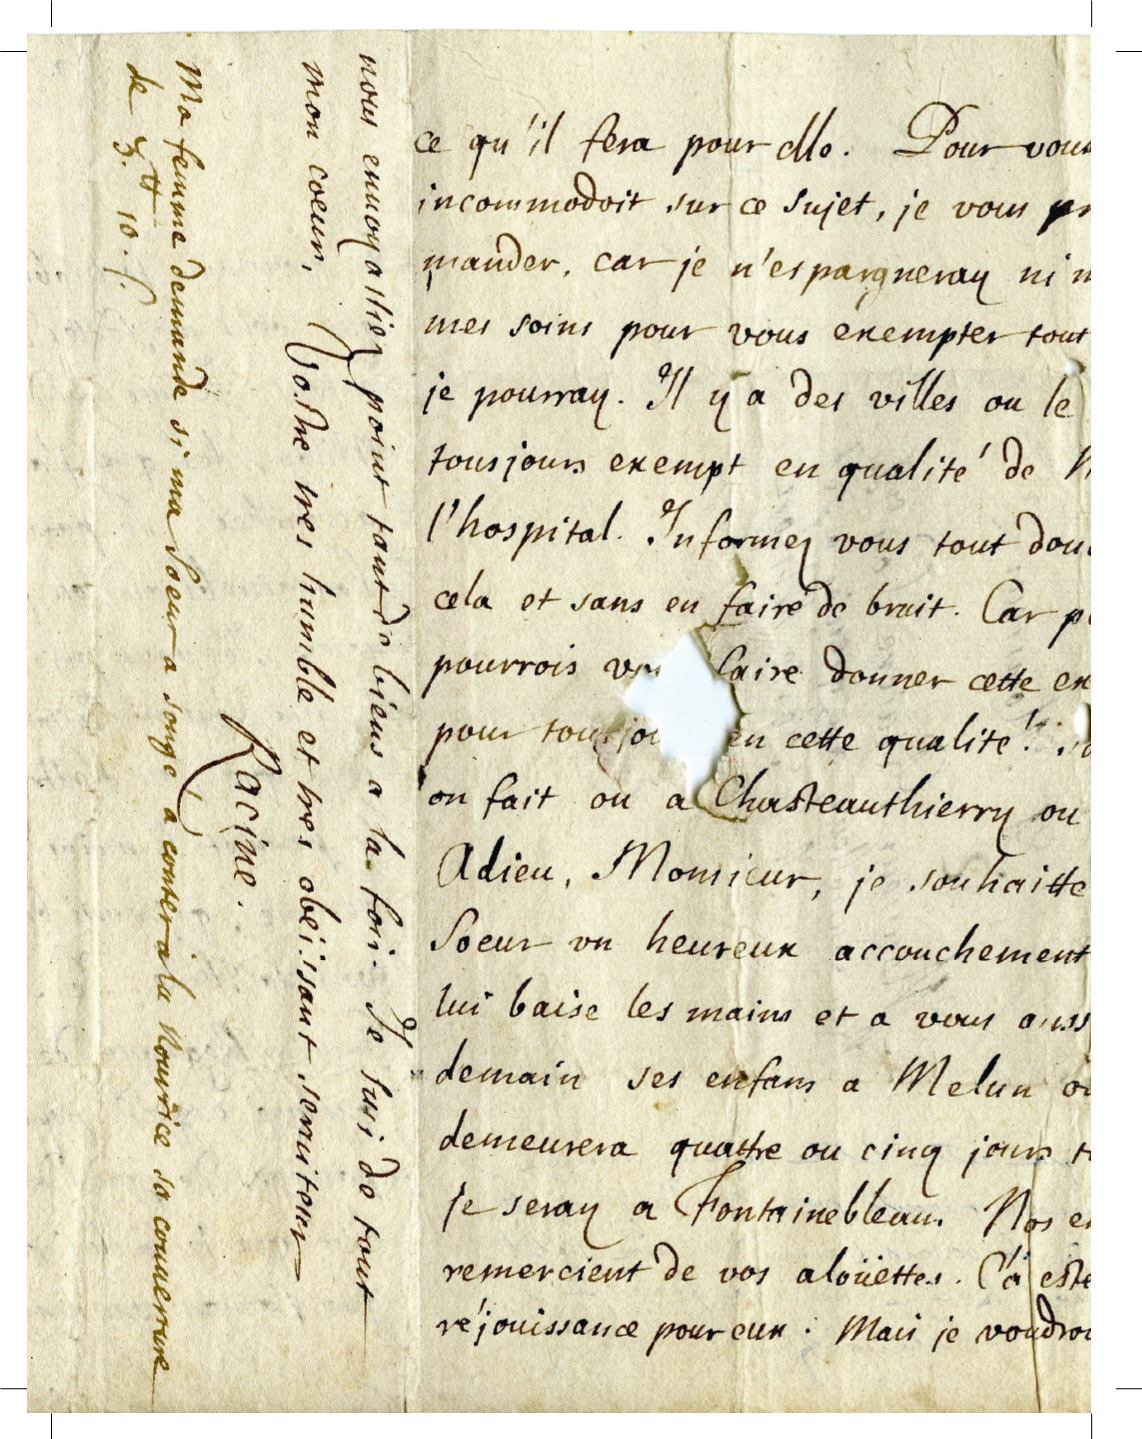 ce qu'il fera pour elle. Pour vous
incommodoit sur ce sujet, je vous pr
mander, car je n'espargneray ni m
mes soins pour vous exempter tout
je pourray. Il y a des villes ou le
tousjours exempt en qualité de
l'hospital. Informez vous tout douc
cela et sans en faire de bruit. Car p
pourrois vous faire donner cette ex
pour tousjou en cette qualité.
on fait ou a Chasteauthierry ou
Adieu, Monsieur, je souhaitte
Soeur un heureux accouchement
lui baise les mains et a vous auss
demain ses enfans a Melun o
demeurera quattre ou cinq jours t
je seray a Fontainebleau. Nos en
remercient de vos aloüettes. C'a esté
réjouissance pour eux. Mais je voudroi
nous envoyassiez point tant de biens a la fois. Je suis de tout
mon coeur, Vostre tres humble et tres obeissant serviteur
Racine.
Ma femme demande si ma Soeur a songé a conter a la Nourrice sa couverture
de 5.tt 10.s.